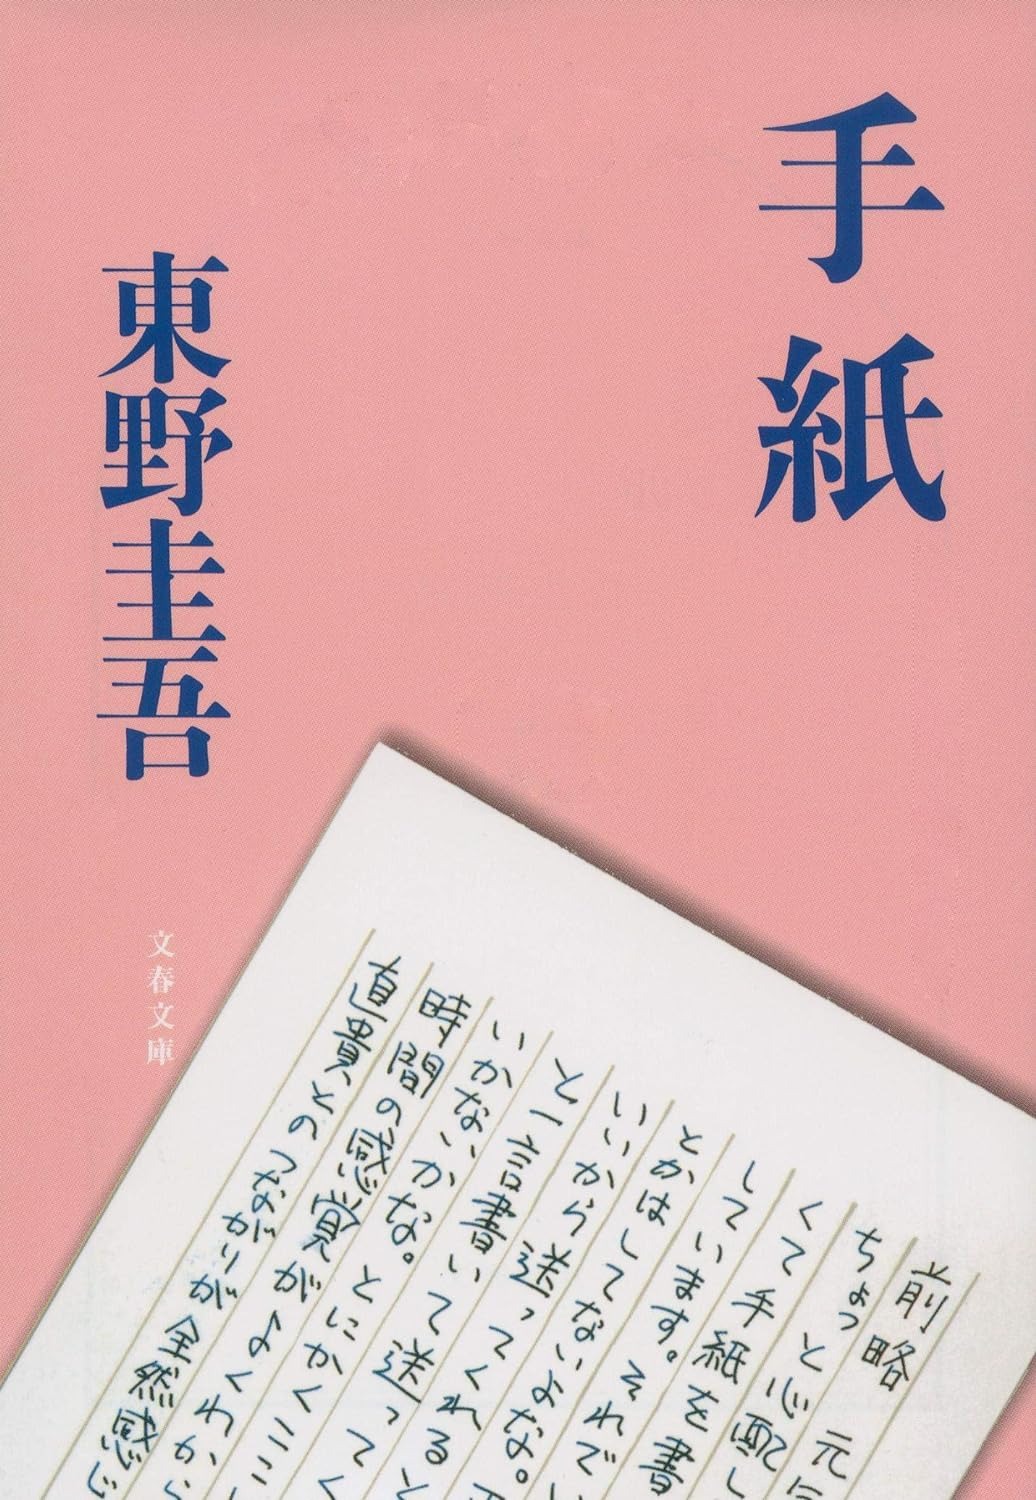 手紙
東野圭吾
文春文庫
前略
ちょっと心配し
くて手紙を書
しています。それで
とかはしてないよな。
いいから送ってくれると
と一言書いて送ってく
いかないかな。とにかくここ
時間の感覚がよくわから
直貴とのつながりが全然感じ